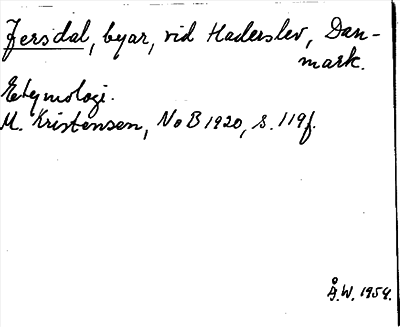 Jersdal, byar, vid Haderslev, Dan-
mark.
Etymologi.
M. Kristensen, NoB 1920, s. 119f.
Å.W. 1954.